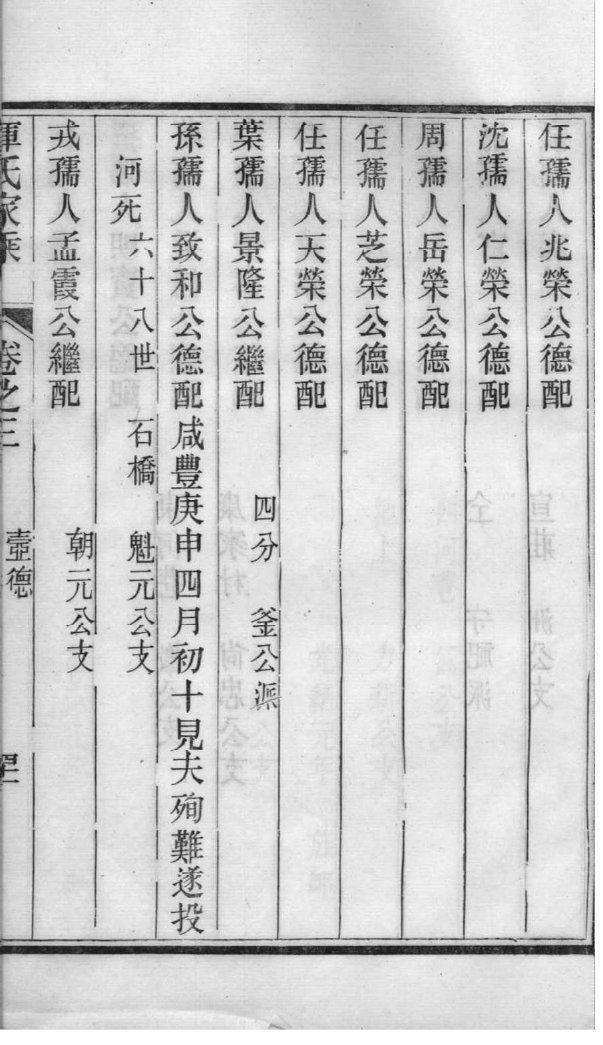 任孺人兆榮公德配
沈孺人仁榮公德配
周孺人岳榮公德配
任孺人芝榮公德配
任孺人天榮公德配
葉孺人景隆公繼配 四分 釜公派
孫孺人致和公德配咸豐庚申四月初十見夫殉難遂投
河死 六十八世 石橋 魁元公支
戎孺人孟霞公繼配 朝元公支
惲氏家乘 卷之三 壼德